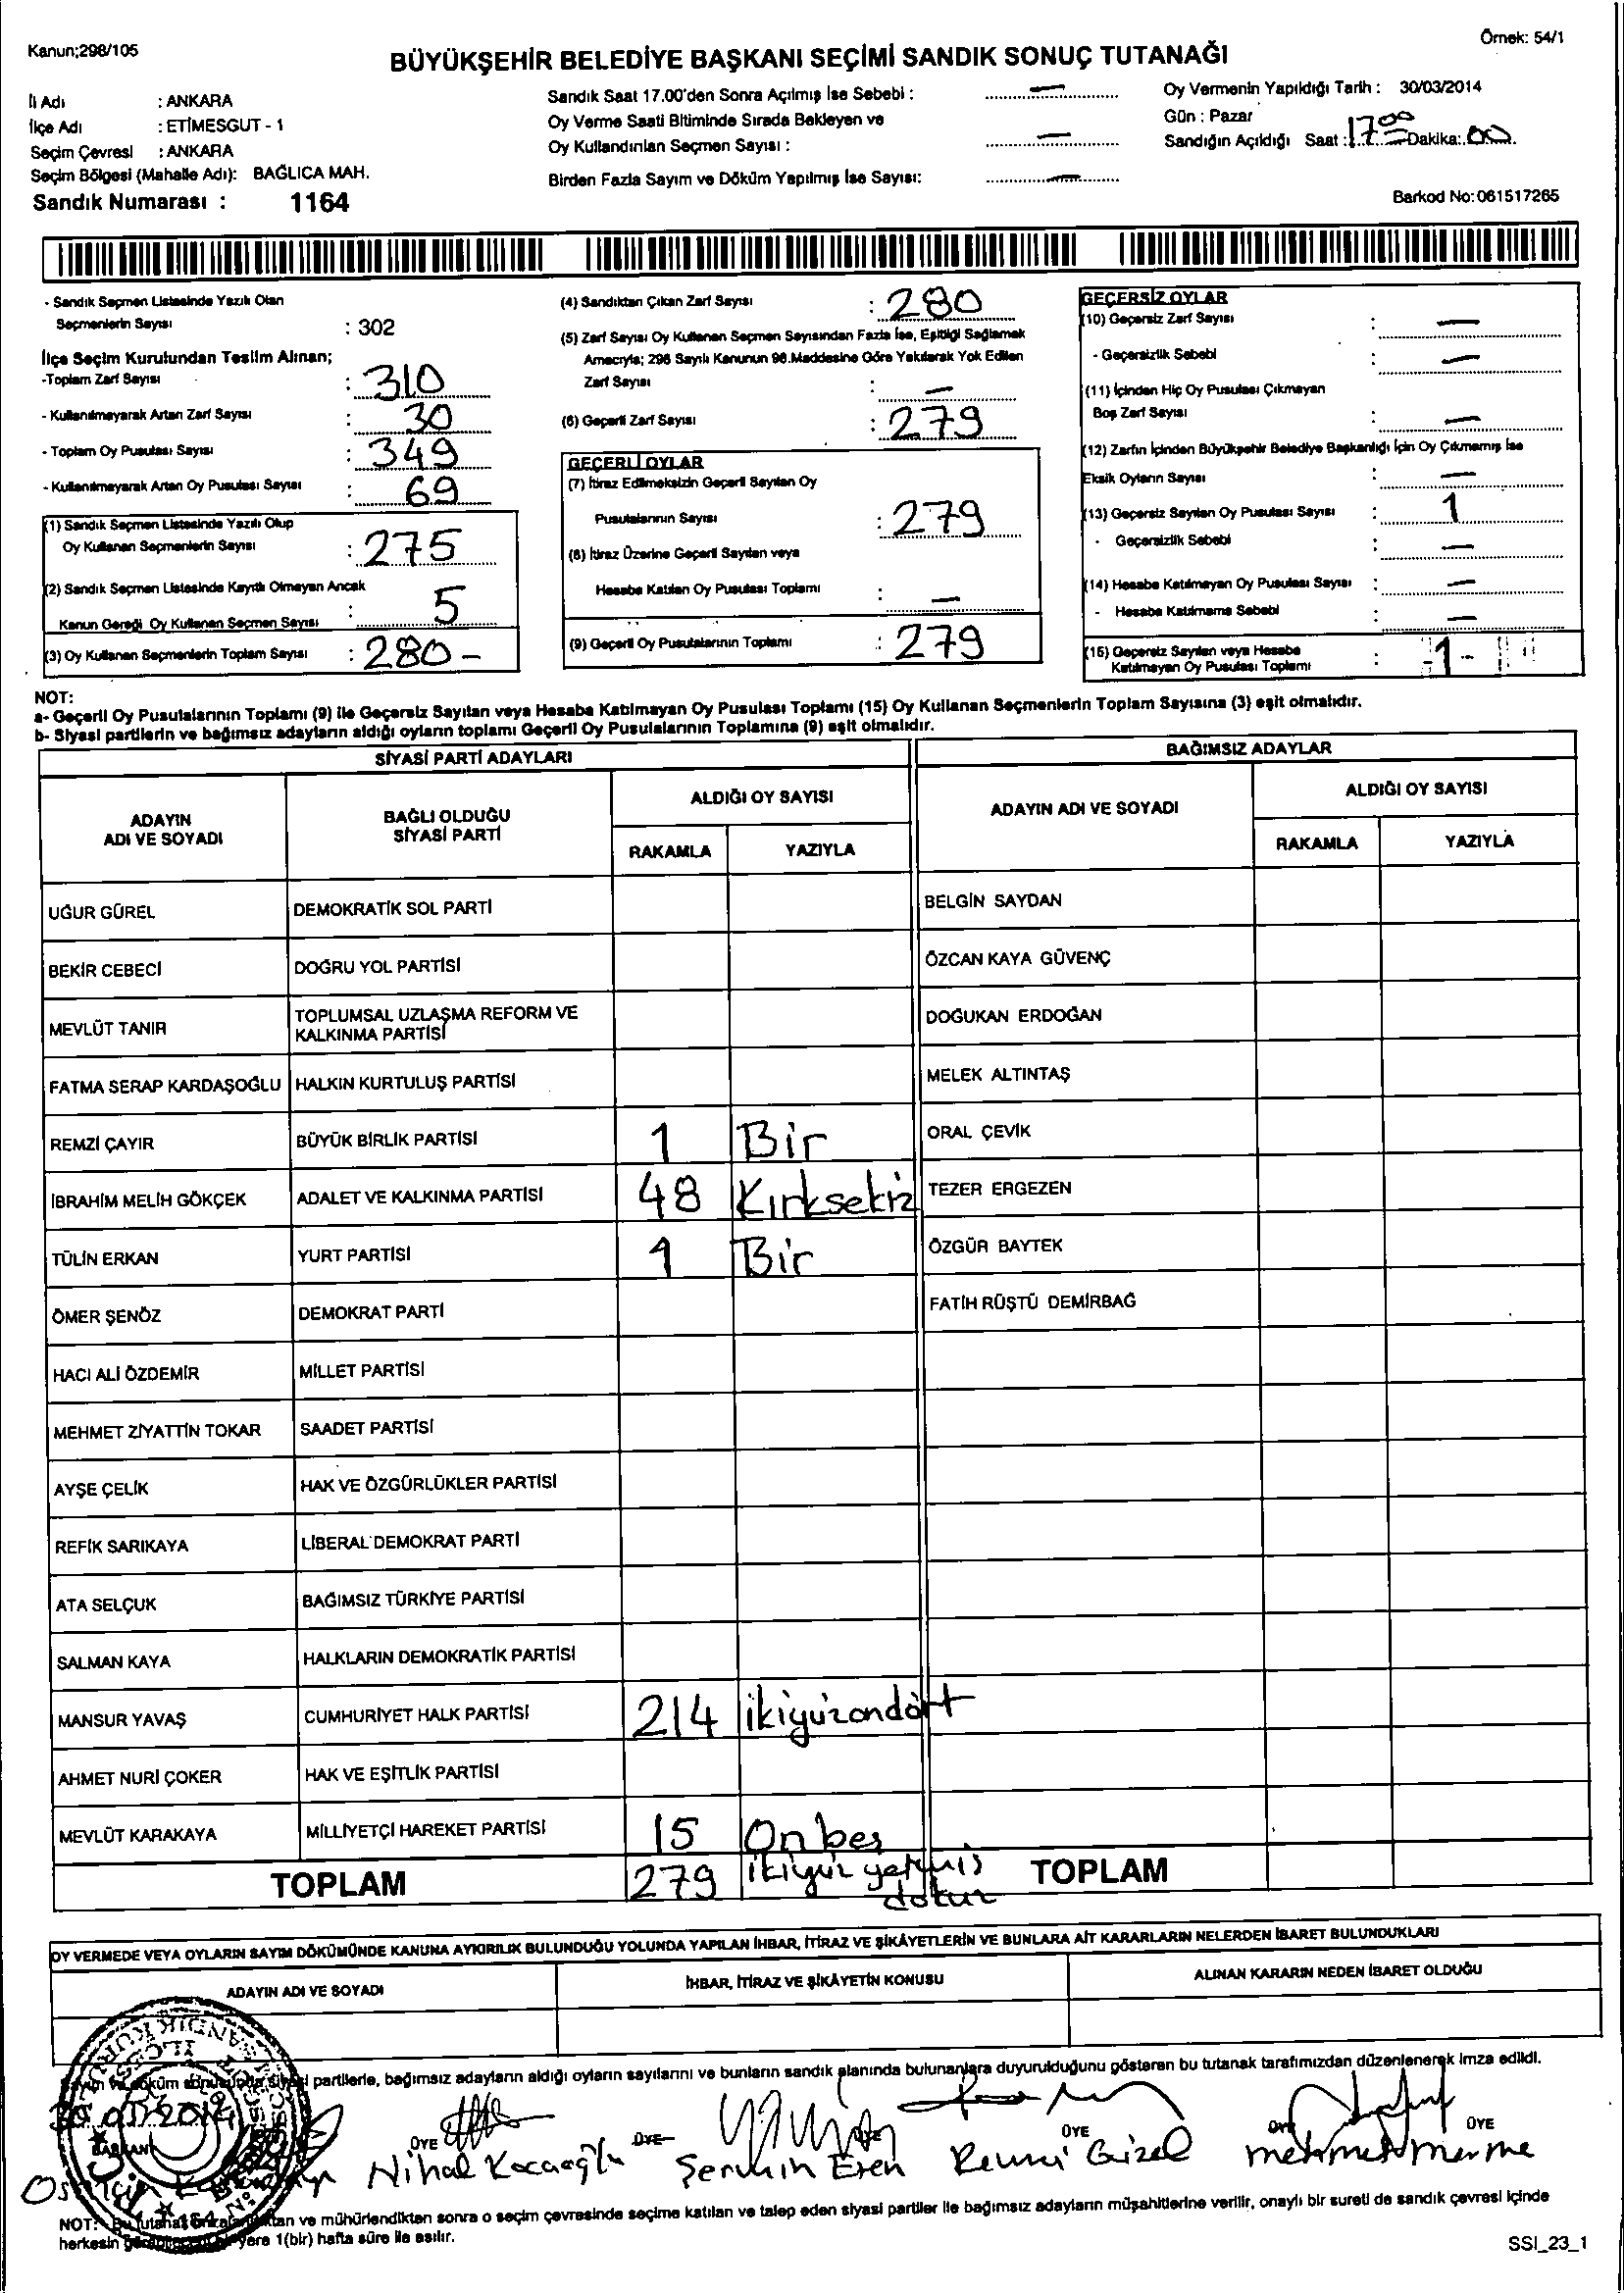 Kanun;298/105
Örnek: 54/1
BÜYÜKŞEHİR BELEDİYE BAŞKANI SEÇİMİ SANDIK SONUÇ TUTANAĞI
İl Adı : ANKARA
İlçe Adı : ETİMESGUT - 1
Seçim Çevresi : ANKARA
Seçim Bölgesi (Mahalle Adı): BAĞLICA MAH.
Sandık Numarası : 1164
Sandık Saat 17.00'den Sonra Açılmış İse Sebebi : —
Oy Verme Saati Bitiminde Sırada Bekleyen ve
Oy Kullandırılan Seçmen Sayısı : —
Birden Fazla Sayım ve Döküm Yapılmış İse Sayısı: —
Oy Vermenin Yapıldığı Tarih : 30/03/2014
Gün : Pazar
Sandığın Açıldığı Saat : 17 00 Dakika: 00
Barkod No:061517265
- Sandık Seçmen Listesinde Yazılı Olan
Seçmenlerin Sayısı : 302
İlçe Seçim Kurulundan Teslim Alınan;
-Toplam Zarf Sayısı : 310
- Kullanılmayarak Artan Zarf Sayısı : 30
- Toplam Oy Pusulası Sayısı : 349
- Kullanılmayarak Artan Oy Pusulası Sayısı : 69
(1) Sandık Seçmen Listesinde Yazılı Olup
Oy Kullanan Seçmenlerin Sayısı : 275
(2) Sandık Seçmen Listesinde Kayıtlı Olmayan Ancak
Kanun Gereği Oy Kullanan Seçmen Sayısı : 5
(3) Oy Kullanan Seçmenlerin Toplam Sayısı : 280 -
(4) Sandıktan Çıkan Zarf Sayısı : 280
(5) Zarf Sayısı Oy Kullanan Seçmen Sayısından Fazla İse, Eşitliği Sağlamak
Amacıyla; 298 Sayılı Kanunun 98.Maddesine Göre Yakılarak Yok Edilen
Zarf Sayısı : —
(6) Geçerli Zarf Sayısı : 279
GEÇERLİ OYLAR
(7) İtiraz Edilmeksizin Geçerli Sayılan Oy
Pusulalarının Sayısı : 279
(8) İtiraz Üzerine Geçerli Sayılan veya
Hesaba Katılan Oy Pusulası Toplamı : —
(9) Geçerli Oy Pusulalarının Toplamı : 279
GEÇERSİZ OYLAR
(10) Geçersiz Zarf Sayısı : —
- Geçersizlik Sebebi : —
(11) İçinden Hiç Oy Pusulası Çıkmayan
Boş Zarf Sayısı : —
(12) Zarfın İçinden Büyükşehir Belediye Başkanlığı İçin Oy Çıkmamış İse
Eksik Oyların Sayısı : —
(13) Geçersiz Sayılan Oy Pusulası Sayısı : 1
- Geçersizlik Sebebi : —
(14) Hesaba Katılmayan Oy Pusulası Sayısı : —
- Hesaba Katılmama Sebebi : —
(15) Geçersiz Sayılan veya Hesaba
Katılmayan Oy Pusulası Toplamı : -1-
NOT:
a- Geçerli Oy Pusulalarının Toplamı (9) ile Geçersiz Sayılan veya Hesaba Katılmayan Oy Pusulası Toplamı (15) Oy Kullanan Seçmenlerin Toplam Sayısına (3) eşit olmalıdır.
b- Siyasi partilerin ve bağımsız adayların aldığı oyların toplamı Geçerli Oy Pusulalarının Toplamına (9) eşit olmalıdır.
SİYASİ PARTİ ADAYLARI
ADAYIN ADI VE SOYADI BAĞLI OLDUĞU SİYASİ PARTİ ALDIĞI OY SAYISI
RAKAMLA YAZIYLA
UĞUR GÜREL DEMOKRATİK SOL PARTİ
BEKİR CEBECİ DOĞRU YOL PARTİSİ
MEVLÜT TANIR TOPLUMSAL UZLAŞMA REFORM VE KALKINMA PARTİSİ
FATMA SERAP KARDAŞOĞLU HALKIN KURTULUŞ PARTİSİ
REMZİ ÇAYIR BÜYÜK BİRLİK PARTİSİ 1 Bir
İBRAHİM MELİH GÖKÇEK ADALET VE KALKINMA PARTİSİ 48 Kırksekiz
TÜLİN ERKAN YURT PARTİSİ 1 Bir
ÖMER ŞENÖZ DEMOKRAT PARTİ
HACI ALİ ÖZDEMİR MİLLET PARTİSİ
MEHMET ZİYATTİN TOKAR SAADET PARTİSİ
AYŞE ÇELİK HAK VE ÖZGÜRLÜKLER PARTİSİ
REFİK SARIKAYA LİBERAL DEMOKRAT PARTİ
ATA SELÇUK BAĞIMSIZ TÜRKİYE PARTİSİ
SALMAN KAYA HALKLARIN DEMOKRATİK PARTİSİ
MANSUR YAVAŞ CUMHURİYET HALK PARTİSİ 214 ikiyüzondört
AHMET NURİ ÇOKER HAK VE EŞİTLİK PARTİSİ
MEVLÜT KARAKAYA MİLLİYETÇİ HAREKET PARTİSİ 15 Onbeş
TOPLAM 279 ikiyüz yetmiş dokuz
BAĞIMSIZ ADAYLAR
ADAYIN ADI VE SOYADI ALDIĞI OY SAYISI
RAKAMLA YAZIYLA
BELGİN SAYDAN
ÖZCAN KAYA GÜVENÇ
DOĞUKAN ERDOĞAN
MELEK ALTINTAŞ
ORAL ÇEVİK
TEZER ERGEZEN
ÖZGÜR BAYTEK
FATİH RÜŞTÜ DEMİRBAĞ
TOPLAM
OY VERMEDE VEYA OYLARIN SAYIM DÖKÜMÜNDE KANUNA AYKIRILIK BULUNDUĞU YOLUNDA YAPILAN İHBAR, İTİRAZ VE ŞİKÂYETLERİN VE BUNLARA AİT KARARLARIN NELERDEN İBARET BULUNDUKLARI
ADAYIN ADI VE SOYADI İHBAR, İTİRAZ VE ŞİKÂYETİN KONUSU ALINAN KARARIN NEDEN İBARET OLDUĞU
partilerle, bağımsız adayların aldığı oyların sayılarını ve bunların sandık alanında bulunanlara duyurulduğunu gösteren bu tutanak tarafımızdan düzenlenerek imza edildi.
BAŞKAN ÜYE ÜYE ÜYE ÜYE ÜYE
Nihal Kocaoğlu Şermin Eren Remzi Güzel
NOT: Bu tutanak ve mühürlendikten sonra o seçim çevresinde seçime katılan ve talep eden siyasi partiler ile bağımsız adayların müşahitlerine verilir, onaylı bir sureti de sandık çevresi içinde
herkesin yere 1(bir) hafta süre ile asılır.
SSI_23_1